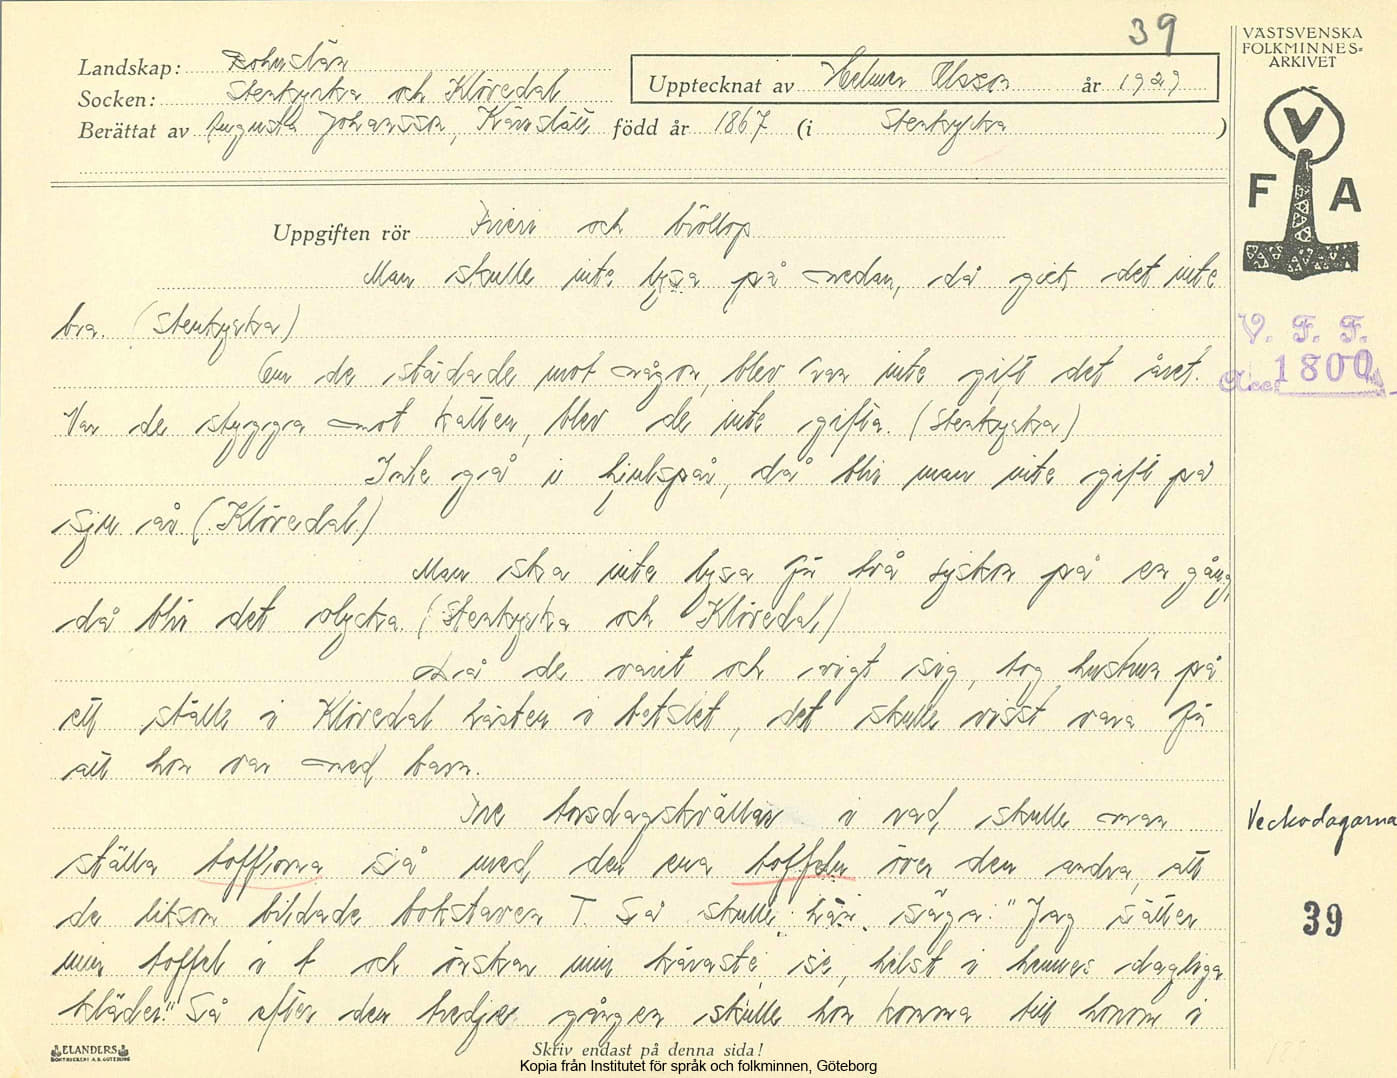 39
VÄSTSVENSKA
FOLKMINNES=
ARKIVET
Landskap: Bohuslän
Socken: Stenkyrka och Klövedal
Upptecknat av Helmer Olsson år 1929
Berättat av Augusta Johansson, Kårestätt född år 1867 (i Stenkyrka )
V
F A
Uppgiften rör Frieri och bröllop
Man skulle inte lysa på nedan, då gick det inte
bra. (Stenkyrka)
V. F. F.
Acc. 1800
Om de städade mot någon, blev han inte gift det året.
Var de stygga mot katten, blev de inte gifta. (Stenkyrka)
Inte gå i hjulspår, då blir man inte gift på
sju år (Klövedal)
Man ska inte lysa för två syskon på en gång,
då blir det olycka. (Stenkyrka och Klövedal)
Då de varit och vigt sig, tog hustrun på
ett ställe i Klövedal hästen i betslet, det skulle visst vara för
att hon var med barn.
Tre torsdagskvällar i rad, skulle man
Veckodagarna
ställa tofflorna så med den ena toffeln över den andra, att
de liksom bildade bokstaven T. Så skulle han säga: "Jag sätter
39
min toffel i t och önskar min käraste se, helst i hennes dagliga
kläder." Så efter den tredje gången skulle hon komma till honom i
ELANDERS
BOKTRYCKERI A.B. GÖTEBORG
Skriv endast på denna sida!
Kopia från Institutet för språk och folkminnen, Göteborg